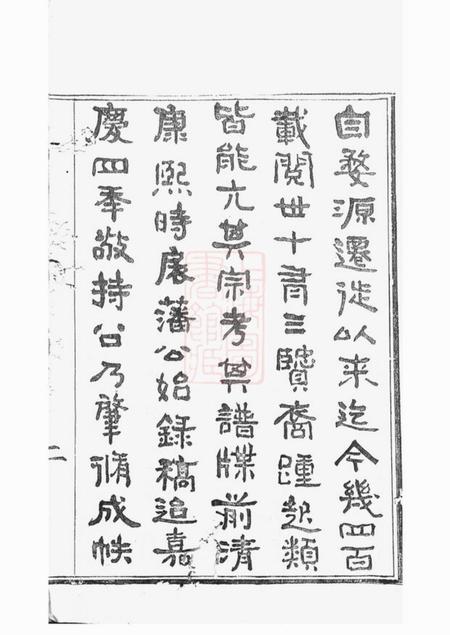 自婺源遷徙以来迄今幾四百
載閱世十有三賢裔踵起類
皆能亢其宗考其譜牒前清
康熙時藩公始録稿追嘉
慶四秊敬持公乃肇脩成帙
二